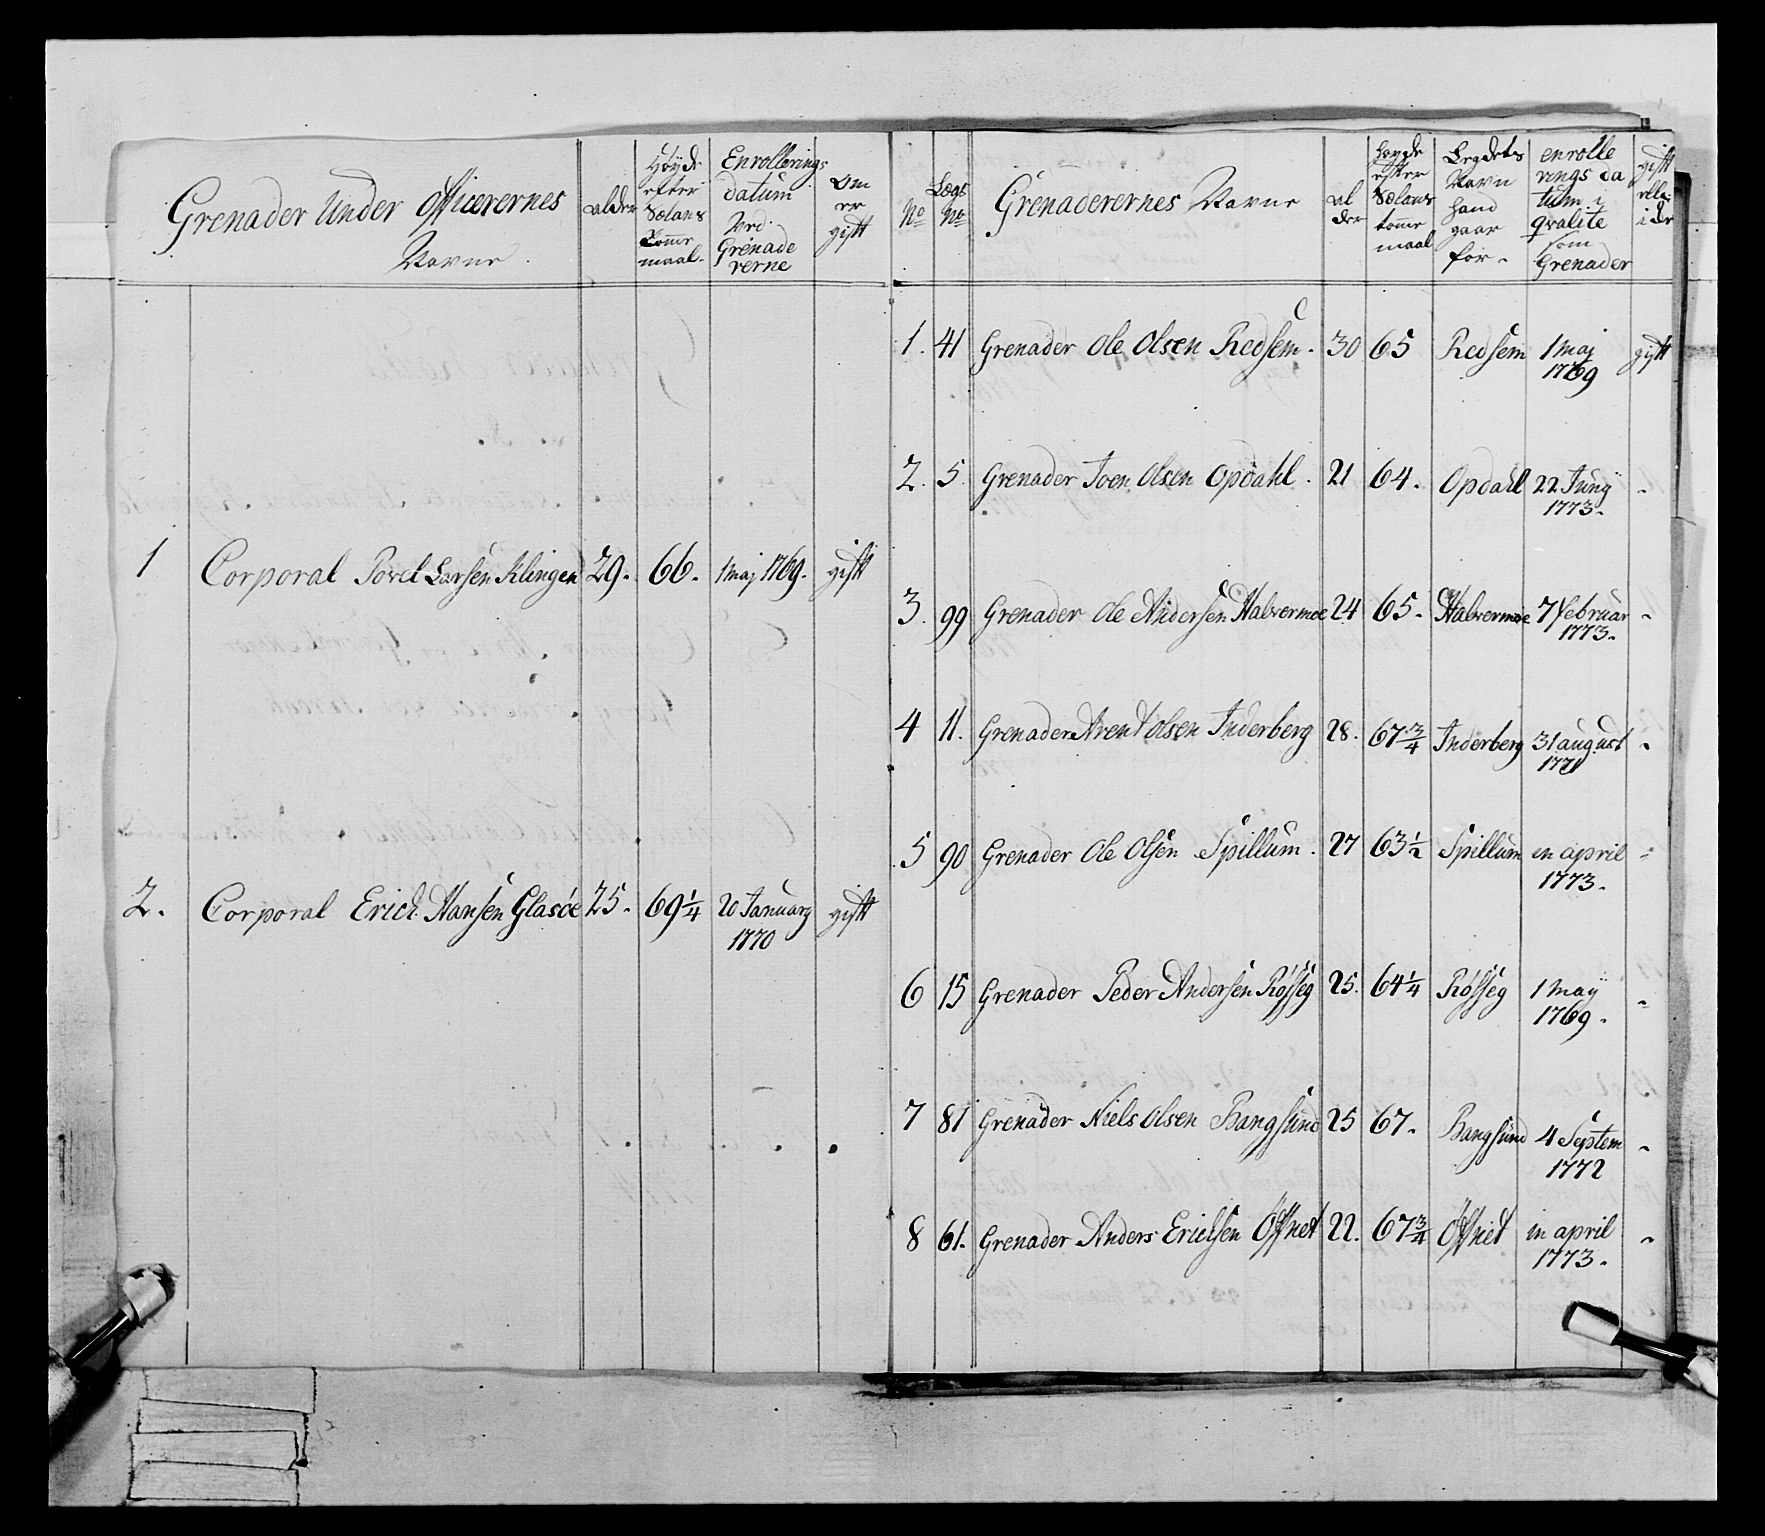 Grenader Under Officerernes
Navne
alder
Høyde
efter
Solans
Tomme
maal.
Enrollerings
datum
ved
Grenade
rerne
Om
er
gift
1 Corporal Povel Larsen Klingen 29. 66. 1 Maj 1769. gift
2. Corporal Erich Hansen Glasöe 25. 69 1/4 20 January gift
1770
No
Lægs
No
Grenaderernes Navne
al
der
høyde
efter
Solans
tomme
maal
Legdets
Navn
hand
gaar
for.
enrolle
rings da
tum i
qvalite
som
Grenader
gift
elle
i de
1. 41 Grenader Ole Olsen Redsem. 30 65 Redsem 1 Maj gift
1769
2. 5. Grenader Joen Olsen Opdahl. 21 64. Opdahl 22 Junij -
1773.
3. 99 Grenader Ole Andersen Halvermoe 24 65. Halvermoe 7 februar -
1773.
4 11. Grenader Arent olsen Inderberg 28. 67 3/4 Inderberg 31 august -
1771
5 90 Grenader Ole Olsen Spillum. 27 63 1/2 Spillum in april -
1773.
6 15 Grenader Peder Andersen Røsseg 25. 64 1/4 Røsseg 1 May -
1769.
7 81 Grenader Niels Olsen Bangsund 25 67. Bangsund 4 Septem -
1772
8 61. Grenader Anders Ericksen Öffnet 22. 67 3/4 Öffnet in april -
1773.